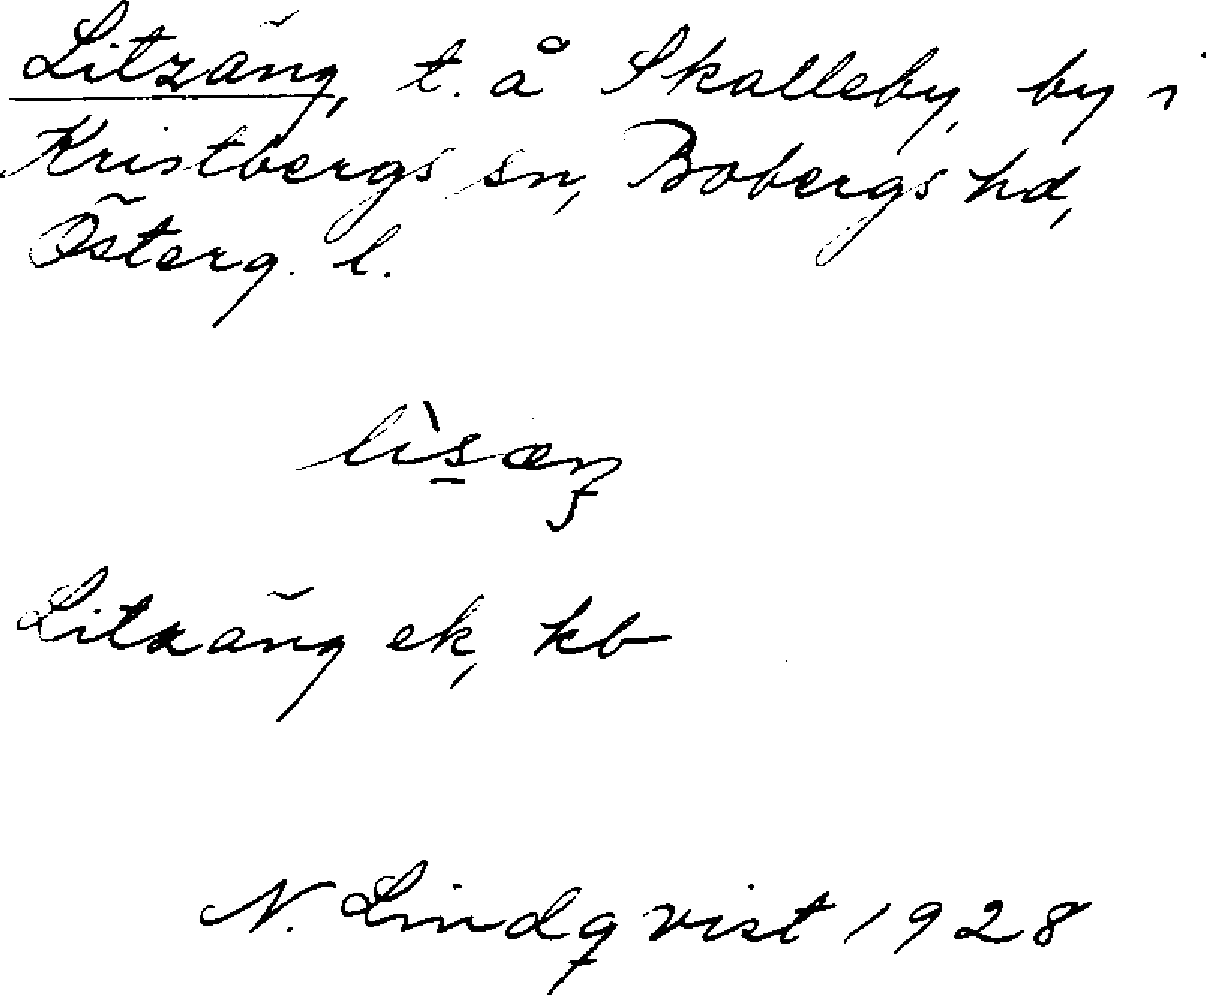 Litzäng, t. å Skalleby, by i
Kristbergs sn, Bobergs hd,
Österg. l.
lìsæŋ
Litzäng ek, kb
N. Lindqvist 1928